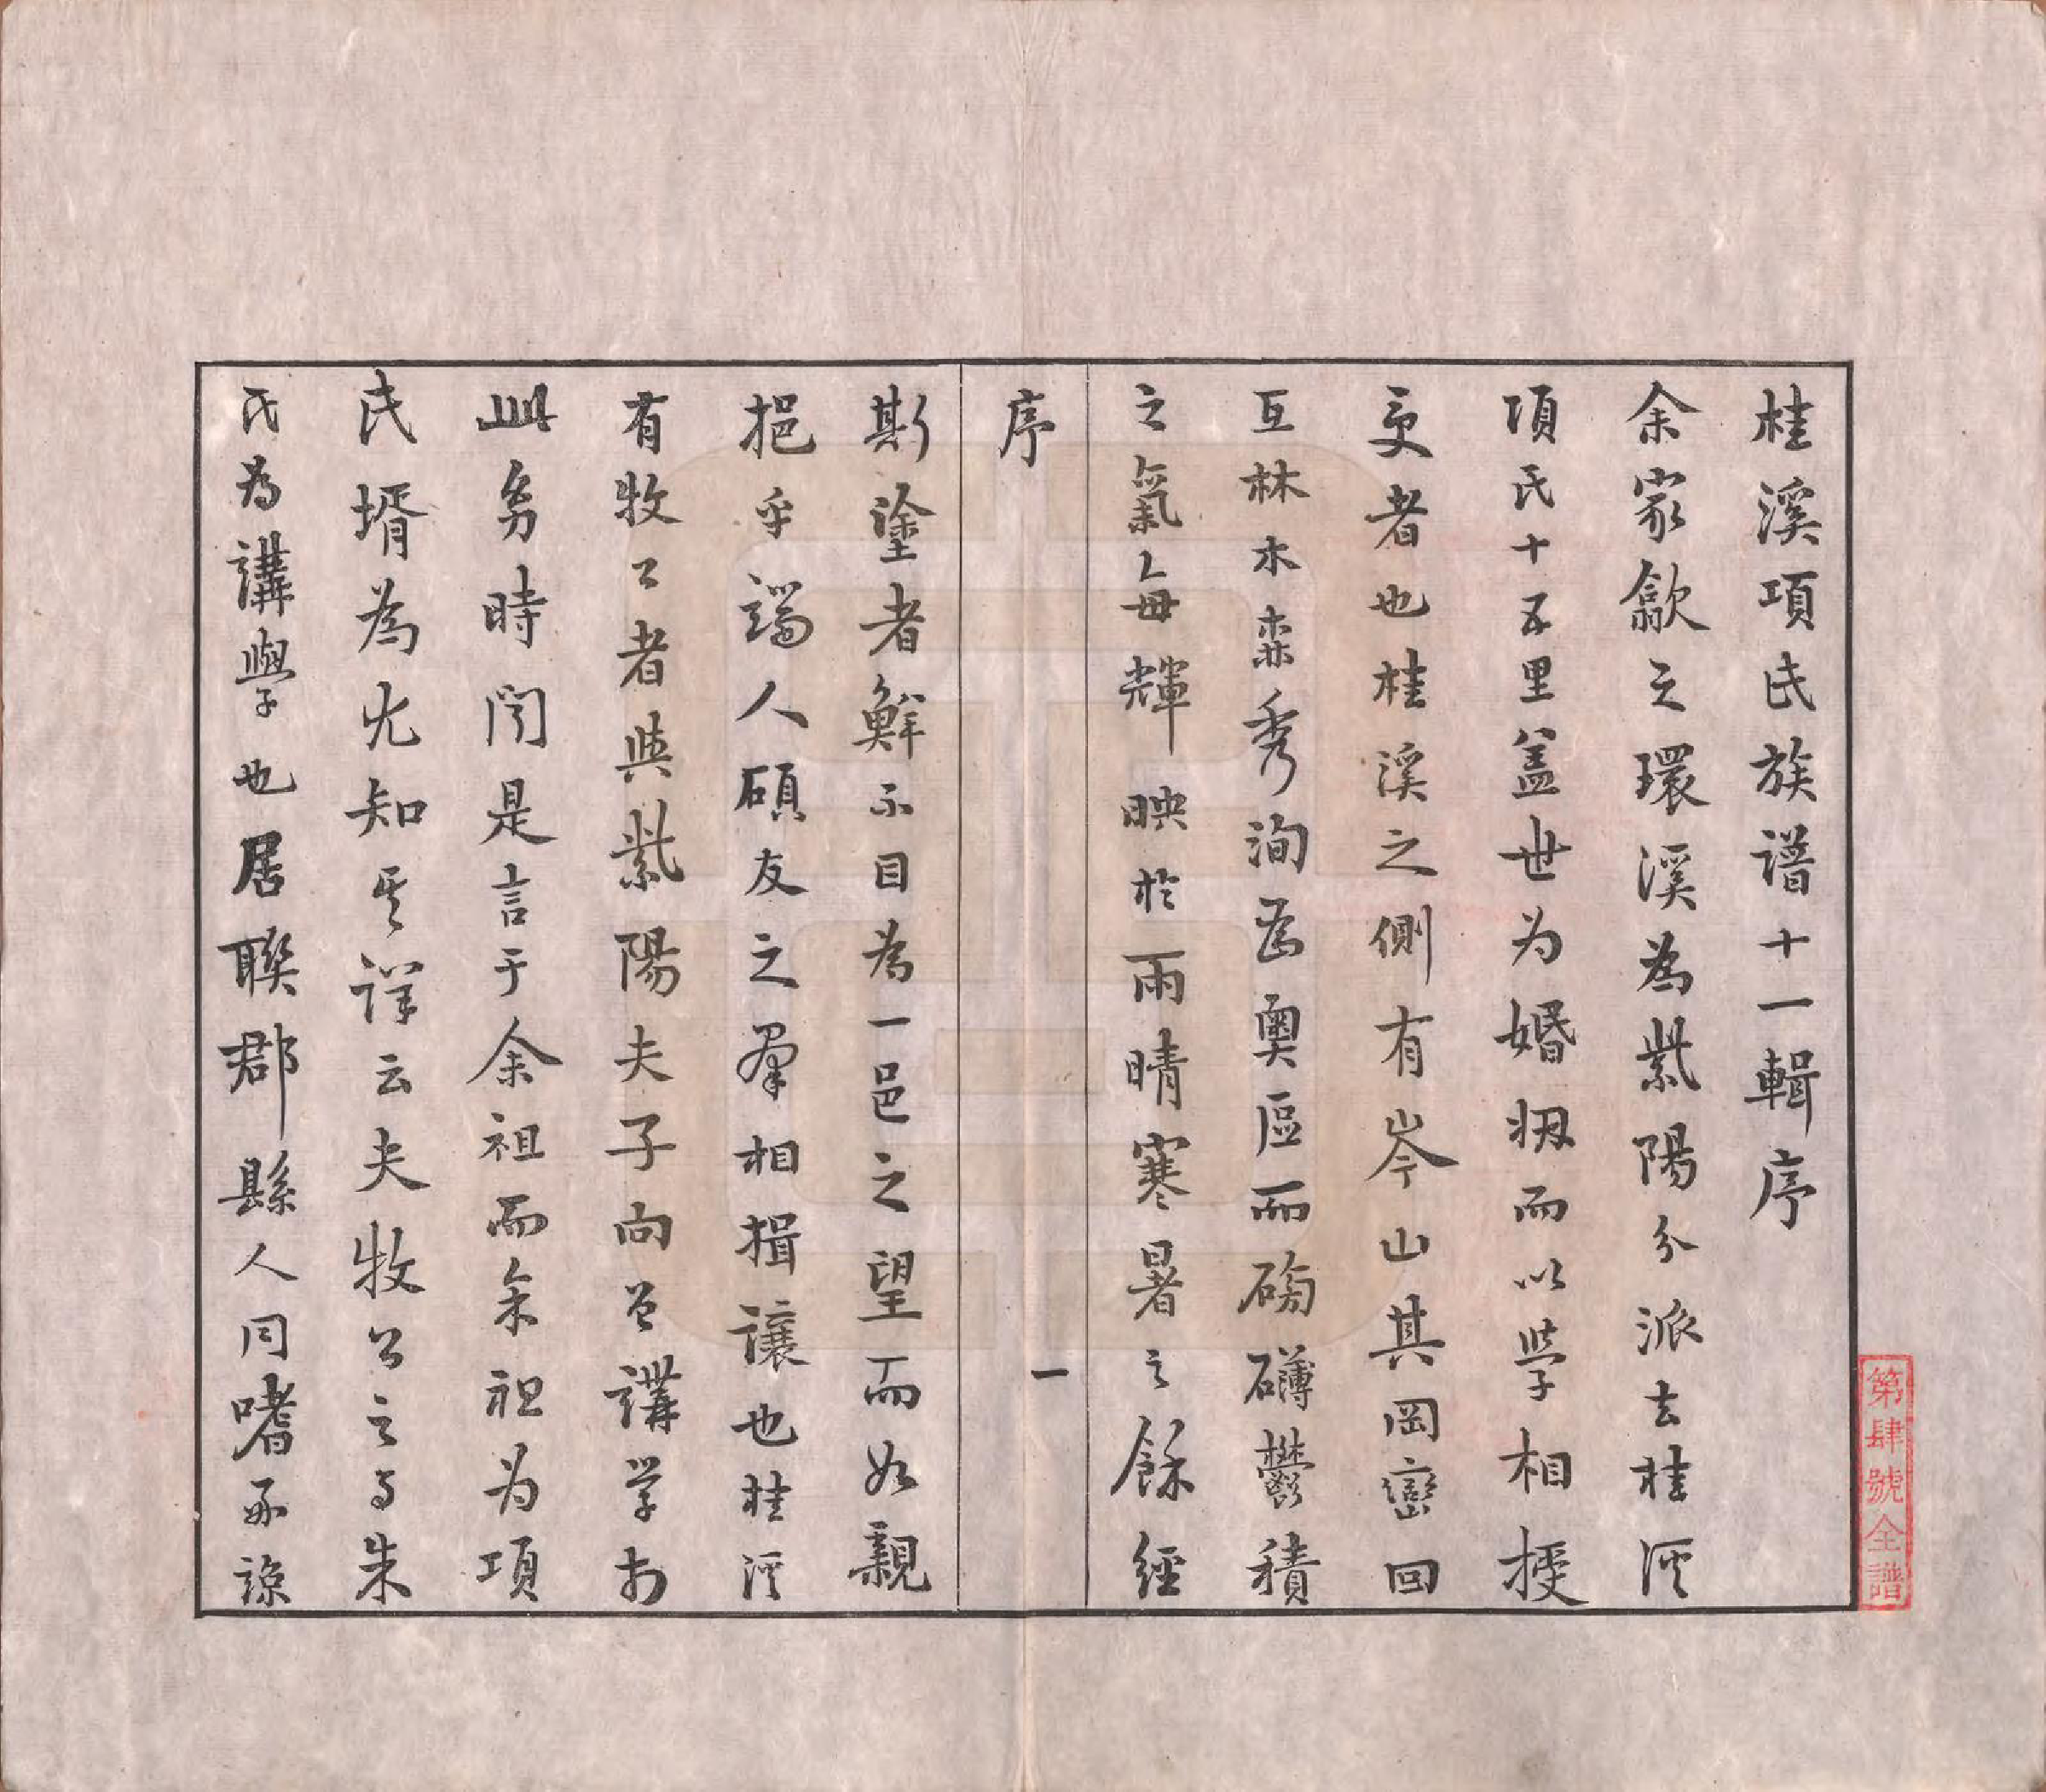 桂溪項氏族譜十一輯序
余家歙之環溪為紫陽分派去桂溪
項氏十五里蓋世为婚姻而以學相授
受者也桂溪之側有岑山其岡巒回
互林木森秀洵為奧區而磅礴鬱積
之氣每輝映於雨晴寒暑之餘經
序
一
斯塗者鮮不目為一邑之望而如親
挹乎端人碩友之羣相揖讓也桂溪
有牧公者與紫陽夫子向曾講学於
此余時聞是言于余祖而余祖为項
氏壻為尤知其詳云夫牧公之与朱
氏為講學也居聯郡縣人同嗜不諒
第肆號全譜